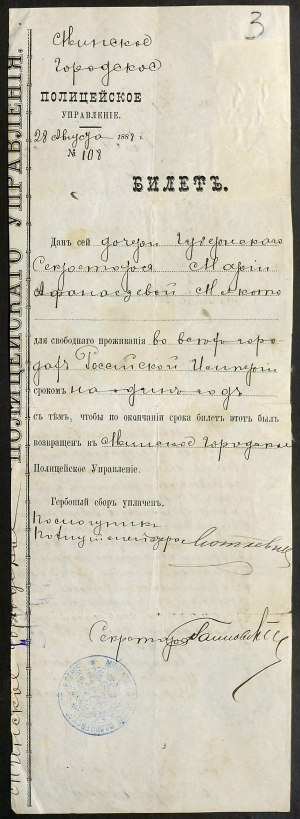 3
Минское
Городское
ПОЛИЦЕЙСКОЕ
УПРАВЛЕНІЕ.
28 Августа 188 г.
№ 108
БИЛЕТЪ.
Данъ сей дочери Губернскаго
Секретаря Маріи
Афанасьевой
для свободнаго проживанія во всѣхъ горо
дахъ Россійской Имперіи
срокомъ на одинъ годъ
съ тѣмъ, чтобы по окончаніи срока билетъ этотъ былъ
возвращенъ въ Минское Городское
Полицейское Управленіе.
Гербовый сборъ уплаченъ.
Секретарь
ПОЛИЦЕЙСКАГО УПРАВЛЕНІЯ.